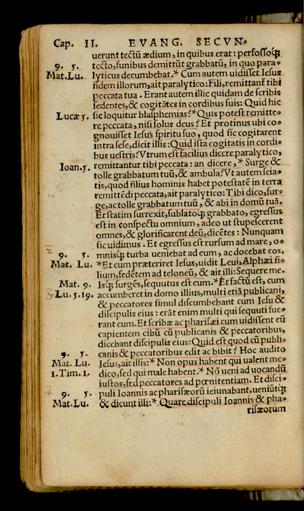 Cap. II. EVANG. SECVN-
uerunt tectũ ædium, in quibus erat: perfossoq;
9. 5. tecto, funibus demittũt grabbatũ, in quo para-
Mat. Lu. lyticus decumbebat.* Cum autem uidisset Iesus
fidem illorum, ait paralytico: Fili, remittunt̃ tibi
peccata tua. Erant autem illic quidam de scribis
sedentes, & cogitãtes in cordibus suis: Quid hic
Lucæ 5. sic loquitur blasphemias?* Quis potest remitte-
re peccata, nisi solus deus? Et protinus ubi co-
gnouisset Iesus spiritu suo, quod sic cogitarent
intra sese, dicit illis: Quid ista cogitatis in cordi-
bus uestris? Vtrum est facilius dicere paralytico,
Ioan. 5. remittuntur tibi peccata: an dicere,* Surge &
tolle grabbatum tuũ, & ambula? Vt autem scia-
tis, quod filius hominis habet potestatẽ in terra
remittẽdi peccata, ait paralytico: Tibi dico, sur-
ge, ac tolle grabbatum tuũ, & abi in domũ tuã.
Et statim surrexit, sublatoq; grabbato, egressus
est in conspectu omnium, adeo ut stupescerent
omnes, & glorificarent deũ, dicẽtes: Nunquam
sic uidimus. Et egressus est rursum ad mare, o-
9. 5. mnisq; turba ueniebat ad eum, ac docebat eos.
Mat. Lu. * Et cum præteriret Iesus, uidit Leui, Alphæi fi-
lium, sedẽtem ad teloneũ, & ait illi: Sequere me.
Mat. 9. Isq; surgẽs, sequutus est eum.* Et factũ est, cum
& Lu. 5. 19. accumberet in domo illius, multi etiã publicani,
& peccatores simul discumbebant cum Iesu &
discipulis eius: erãt enim multi qui sequuti fue-
rant eum. Et scribæ ac pharisæi cum uidissent eũ
capientem cibũ cũ publicanis & peccatoribus,
dicebant discipulis eius: Quid est quod cũ publi-
9. 5. canis & peccatoribus edit ac bibit? Hoc audito
Mat. Lu. Iesus, ait illis:* Non opus habent qui ualent me-
1. Tim. 1. dico, sed qui male habent.* Nõ ueni ad uocandũ
iustos, sed peccatores ad pœnitentiam. Et disci-
9. 5. puli Ioannis ac pharisæorũ ieiunabant, ueniũtq;
Mat. Lu. & dicunt illi:* Quare discipuli Ioannis & pha-
risæorum